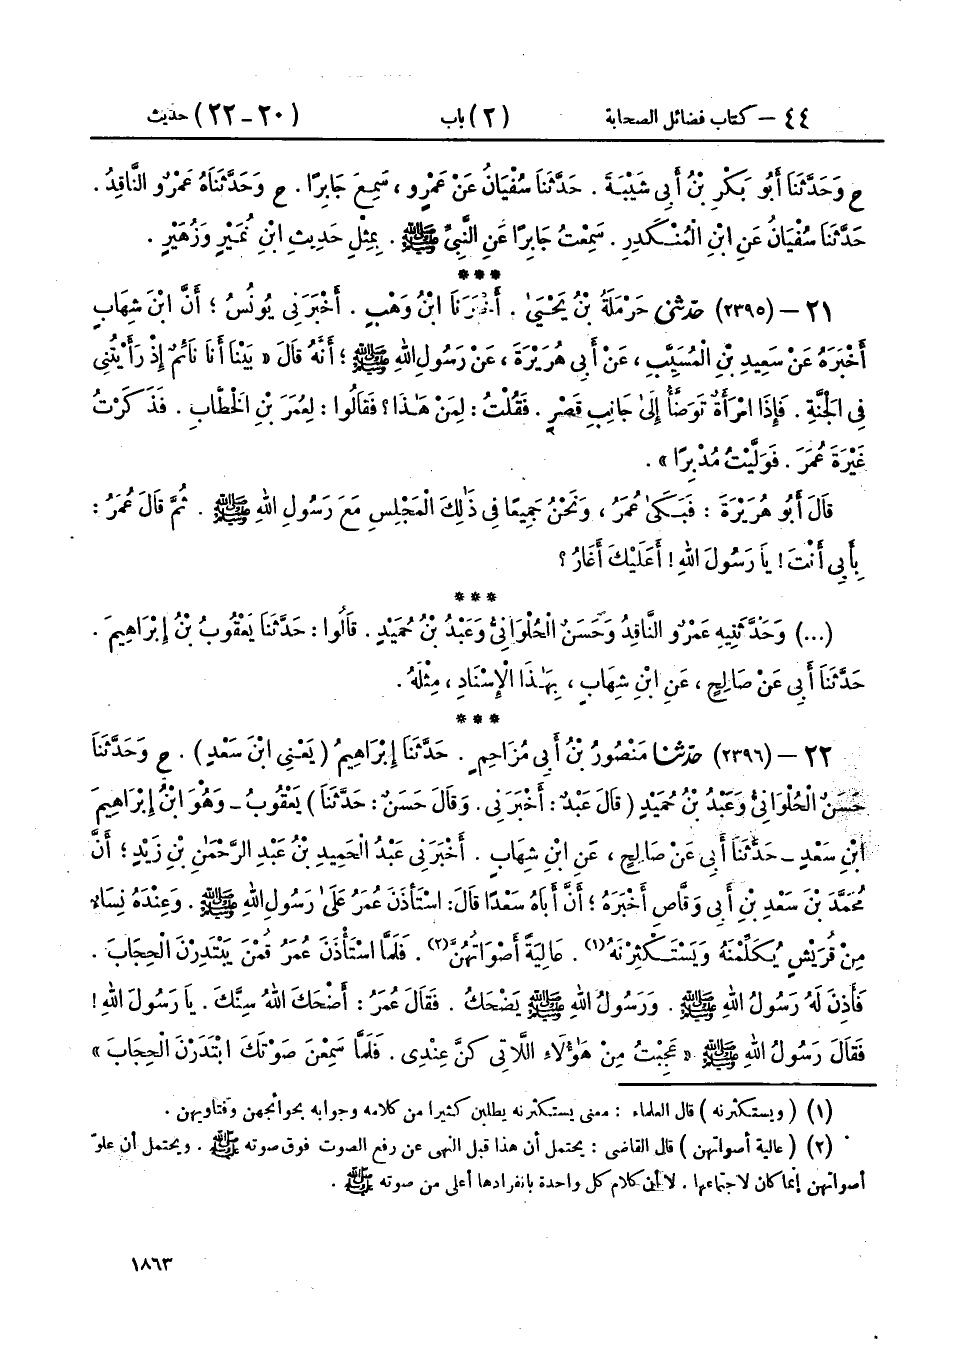 ٤٤ – كتاب فضائل الصحابة (٢) باب (٢٠-٢٢) حديث
ع وَحَدَّثَنَا أَبُو بَكْرِ بْنُ أَبِي شَيْبَةَ . حَدَّثَنَا سُفْيَانُ عَنْ عَمْرٍو ، سَمِعَ جَابِرًا . ع وَحَدَّثَنَاهُ عَمْرٌو النَّاقِدُ .
حَدَّثَنَا سُفْيَانُ عَنِ ابْنِ الْمُنْكَدِرِ . سَمِعْتُ جَابِرًا عَنِ النَّبِيِّ ﷺ . بِمِثْلِ حَدِيثِ ابْنِ نُمَيْرٍ وَزُهَيْرٍ .
***
٢١ – (٢٣٩٥) حَدَّثَنِي حَرْمَلَةُ بْنُ يَحْيَىٰ . أَخْبَرَنَا ابْنُ وَهْبٍ . أَخْبَرَنِي يُونُسُ ؛ أَنَّ ابْنَ شِهَابٍ
أَخْبَرَهُ عَنْ سَعِيدِ بْنِ الْمُسَيَّبِ ، عَنْ أَبِي هُرَيْرَةَ ، عَنْ رَسُولِ اللهِ ﷺ ؛ أَنَّهُ قَالَ « بَيْنَا أَنَا نَائِمٌ إِذْ رَأَيْتُنِي
فِي الْجَنَّةِ . فَإِذَا امْرَأَةٌ تَوَضَّأُ إِلَىٰ جَانِبِ قَصْرٍ . فَقُلْتُ : لِمَنْ هَٰذَا ؟ فَقَالُوا : لِعُمَرَ بْنِ الْخَطَّابِ . فَذَكَرْتُ
غَيْرَةَ عُمَرَ . فَوَلَّيْتُ مُدْبِرًا » .
قَالَ أَبُو هُرَيْرَةَ : فَبَكَىٰ عُمَرُ ، وَنَحْنُ جَمِيعًا فِي ذَٰلِكَ الْمَجْلِسِ مَعَ رَسُولِ اللهِ ﷺ . ثُمَّ قَالَ عُمَرُ :
بِأَبِي أَنْتَ ! يَا رَسُولَ اللهِ ! أَعَلَيْكَ أَغَارُ ؟
***
(...) وَحَدَّثَنِيهِ عَمْرٌو النَّاقِدُ وَحَسَنٌ الْحُلْوَانِيُّ وَعَبْدُ بْنُ حُمَيْدٍ . قَالُوا : حَدَّثَنَا يَعْقُوبُ بْنُ إِبْرَاهِيمَ .
حَدَّثَنَا أَبِي عَنْ صَالِحٍ ، عَنِ ابْنِ شِهَابٍ ، بِهَٰذَا الْإِسْنَادِ ، مِثْلَهُ .
***
٢٢ – (٢٣٩٦) حَدَّثَنَا مَنْصُورُ بْنُ أَبِي مُزَاحِمٍ . حَدَّثَنَا إِبْرَاهِيمُ ( يَعْنِي ابْنَ سَعْدٍ ) . ع وَحَدَّثَنَا
حَسَنٌ الْحُلْوَانِيُّ وَعَبْدُ بْنُ حُمَيْدٍ ( قَالَ عَبْدٌ : أَخْبَرَنِي . وَقَالَ حَسَنٌ : حَدَّثَنَا ) يَعْقُوبُ – وَهُوَ ابْنُ إِبْرَاهِيمَ
ابْنِ سَعْدٍ – حَدَّثَنَا أَبِي عَنْ صَالِحٍ ، عَنِ ابْنِ شِهَابٍ . أَخْبَرَنِي عَبْدُ الْحَمِيدِ بْنُ عَبْدِ الرَّحْمَٰنِ بْنِ زَيْدٍ ؛ أَنَّ
مُحَمَّدَ بْنَ سَعْدِ بْنِ أَبِي وَقَّاصٍ أَخْبَرَهُ ؛ أَنَّ أَبَاهُ سَعْدًا قَالَ : اسْتَأْذَنَ عُمَرُ عَلَىٰ رَسُولِ اللهِ ﷺ . وَعِنْدَهُ نِسَاءٌ
مِنْ قُرَيْشٍ يُكَلِّمْنَهُ وَيَسْتَكْثِرْنَهُ(١) . عَالِيَةً أَصْوَاتُهُنَّ(٢) . فَلَمَّا اسْتَأْذَنَ عُمَرُ قُمْنَ يَبْتَدِرْنَ الْحِجَابَ .
فَأَذِنَ لَهُ رَسُولُ اللهِ ﷺ . وَرَسُولُ اللهِ ﷺ يَضْحَكُ . فَقَالَ عُمَرُ : أَضْحَكَ اللهُ سِنَّكَ . يَا رَسُولَ اللهِ !
فَقَالَ رَسُولُ اللهِ ﷺ « عَجِبْتُ مِنْ هَٰؤُلَاءِ اللَّاتِي كُنَّ عِنْدِي . فَلَمَّا سَمِعْنَ صَوْتَكَ ابْتَدَرْنَ الْحِجَابَ »
(١) ( ويستكثرنه ) قال العلماء : معنى يستكثرنه يطلبن كثيرا من كلامه وجوابه بحوائجهن وفتاويهن .
(٢) ( عالية أصواتهن ) قال القاضى : يحتمل أن هذا قبل النهى عن رفع الصوت فوق صوته ﷺ . ويحتمل أن علوّ
أصواتهن إنما كان لاجتماعها . لا أن كلام كل واحدة بانفرادها أعلى من صوته ﷺ .
١٨٦٣